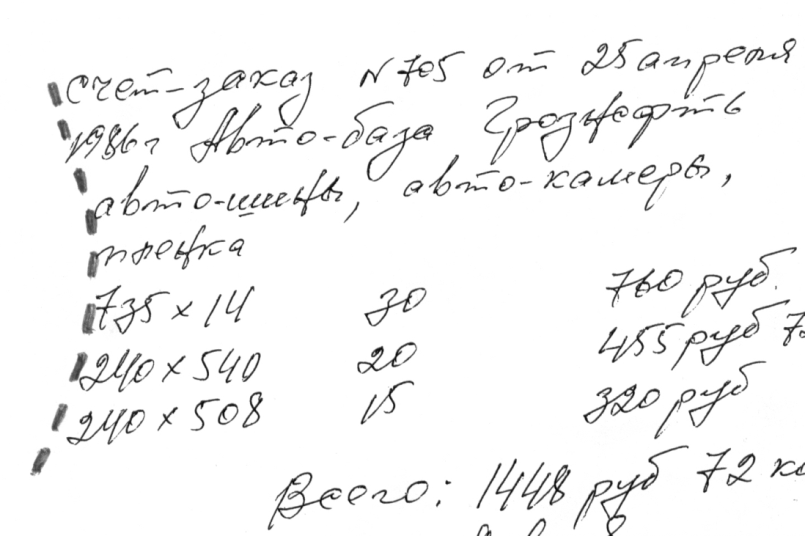 счет-заказ N 705 от 25 апреля
1986г Авто-база Грознефть
авто-шины, авто-камеры,
пленка
735 х 14 30 760 руб.
240 х 540 20 455 руб 72
240 х 508 15 320 руб
Всего: 1448 руб 72 ко